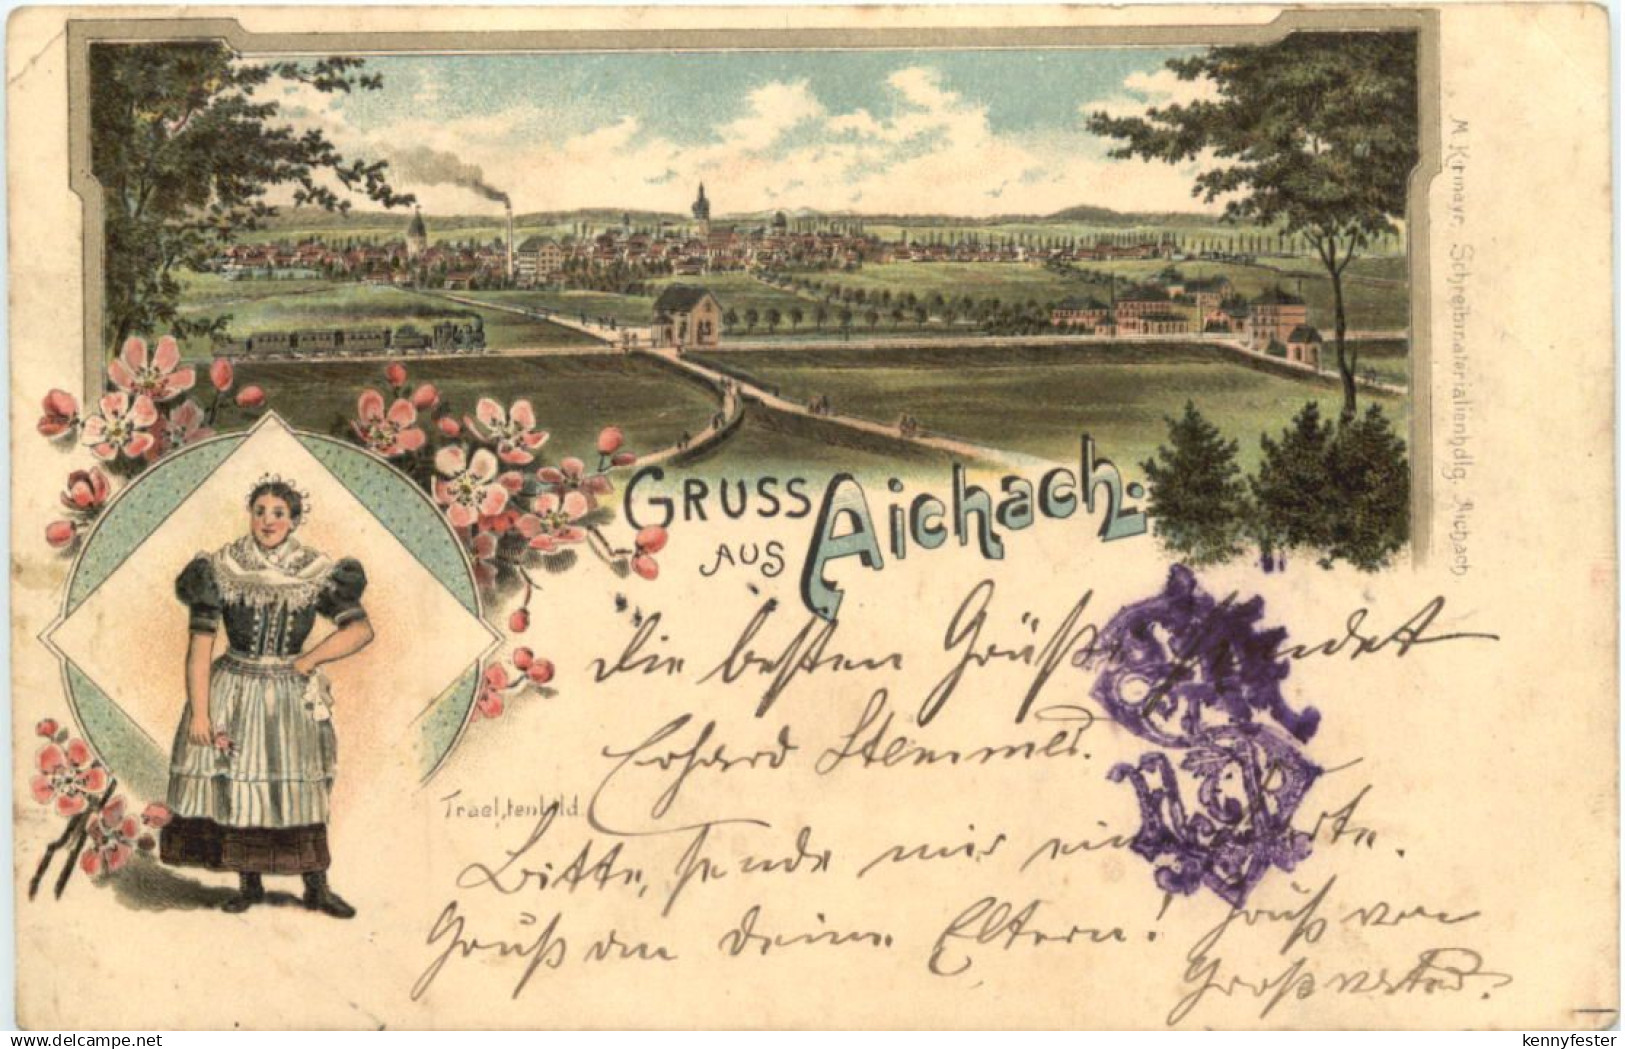 M. Kirmayr, Schreibmaterialienhdlg. Aichach
GRUSS
AUS Aichach.
Die besten Grüße sendet
Erhard Stemmer.
Trachtenbild.
Bitte, sende mir eine Karte.
Gruß an deine Eltern! Gruß von
Großvater.
delcampe.net
kennyfester